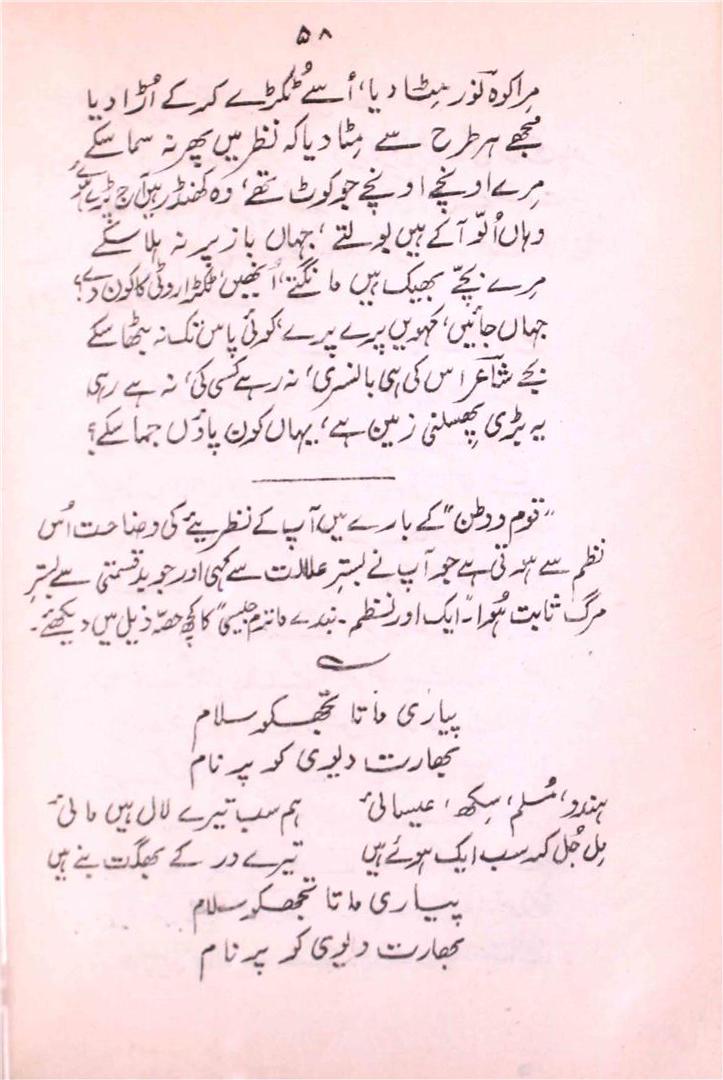 ۵۸
مِرا کوہِ نور مِٹا دیا، اُسے ٹکڑے کر کے اُڑا دیا
مجھے ہر طرح سے مِٹا دیا کہ نظر میں پھر نہ سما سکے
مرے اونچے اونچے جو کوٹ تھے، وہ کھنڈر ہیں آج پڑے ہوئے
وہاں اُلّو آ کے ہیں بولتے، جہاں باز پر نہ ہلا سکے
مرے بچّے بھیک ہیں مانگتے، اُنھیں ٹکڑا روٹی کا کون دے؟
جہاں جائیں، کہویں پرے پرے، کوئی پاس تک نہ بٹھا سکے
بجے شاعر اس کی ہی بانسری، نہ رہے کسی کی، نہ ہے رہی
یہ بڑی پھسلنی زمین ہے، یہاں کون پاؤں جما سکے؟
"قوم و وطن" کے بارے میں آپ کے نظریئے کی وضاحت اُس
نظم سے ہوتی ہے جو آپ نے بسترِ علالت سے کہی اور جو بدقسمتی سے بسترِ
مرگ ثابت ہُوا۔ ایک اور نظم۔ بندے ماترم جیسی" کا کچھ حصّہ ذیل میں دیکھئے۔
پیاری ماتا تجھکو سلام
بھارت دیوی کو پرنام
ہندو، مُسلم، سِکھ، عیسائی ہم سب تیرے لال ہیں مائی
مِل جُل کر سب ایک ہوئے ہیں تیرے در کے بھگت بنے ہیں
پیاری ماتا تجھکو سلام
بھارت دیوی کو پرنام